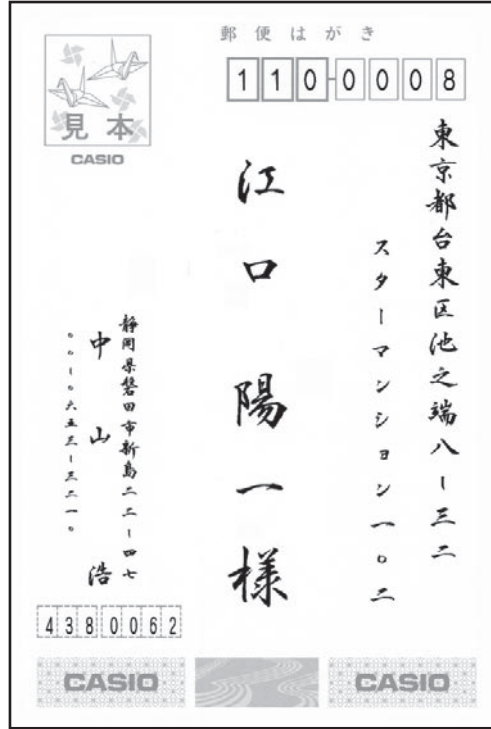 郵便はがき
110-0008
東京都台東区池之端八ー三二
スターマンション一〇二
江口陽一様
見本
CASIO
静岡県磐田市新島二二ー四七
中山 浩
〇〇ー〇六五三ー三二一〇
4380062
CASIO
CASIO